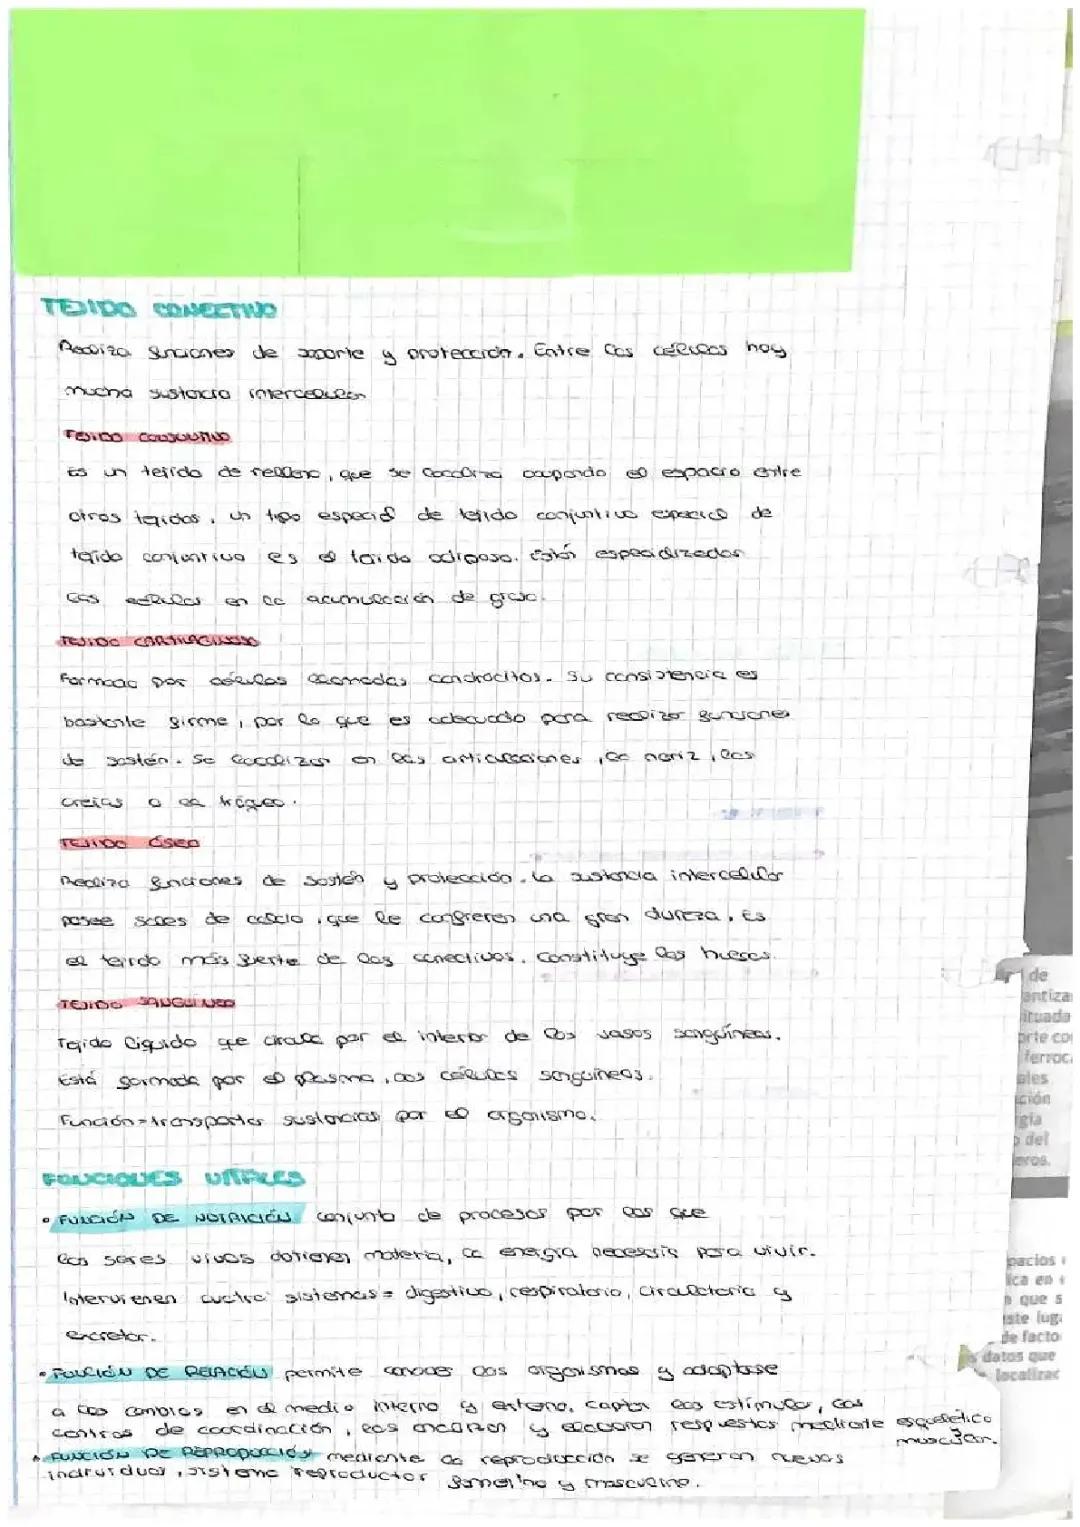 TEJIDO CONECTIVO
Realiza funciones de soporte y protección. Entre las células hay
mucha sustancia intercelular
TEJIDO CONJUNTIVO
Es un tejido de relleno, que se localiza ocupando el espacio entre
otros tejidos, un tipo especial de tejido conjuntivo especial de
tejido conjuntivo es el tejido adiposo. Están especializadas
las células en la acumulación de grasa.
TEJIDO CARTILAGINOSO
Formado por células llamadas condrocitos. Su consistencia es
bastante firme, por lo que es adecuado para realizar funciones
de sostén. Se localizan en las articulaciones, la nariz, las
orejas o la tráquea.
TEJIDO ÓSEO
Realiza funciones de sostén y protección. La sustancia intercelular
posee sales de calcio, que le confieren una gran dureza. Es
el tejido más fuerte de los conectivos. Constituye los huesos.
TEJIDO SANGUÍNEO
Tejido líquido que circula por el interior de los vasos sanguíneos.
Está formada por el plasma, las células sanguíneas.
Función = transportar sustancias por el organismo.
FUNCIONES VITALES
• FUNCIÓN DE NUTRICIÓN conjunto de procesos por los que
los seres vivos obtienen materia, la energía necesaria para vivir.
Intervienen cuatro sistemas = digestivo, respiratorio, circulatorio y
excretor.
• FUNCIÓN DE RELACIÓN permite conocer los organismos y adaptarse
a los cambios en el medio interno y externo. Captan los estímulos, los
centros de coordinación, los analizan y elaboran respuestas mediante esquelético
muscular.
• FUNCIÓN DE REPRODUCCIÓN mediante la reproducción se generan nuevos
individuos, sistema reproductor femenino y masculino.
de
antiza
ituada
orte co
ferroc
ales
ción
gía
o del
eros.
pacios
ica en
que s
ste luga
de facto
datos que
localizac